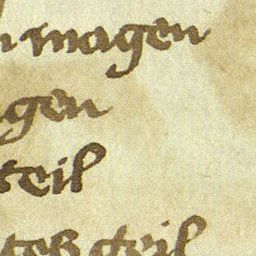 n magen
gen
teil
tes teil